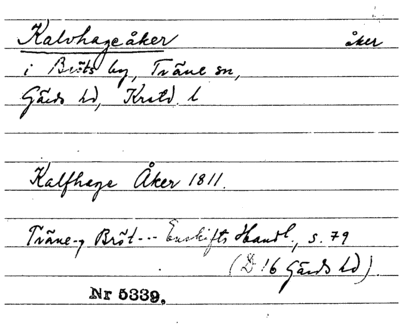 Kalvhageåker åker
i Bröts by, Träne sn,
Gärds hd, Krstd. l
Kalfhage Åker 1811.
Träne-, Bröt--- Enskifts Handl., s. 79
(D 16 Gärds hd).
Nr 5339.